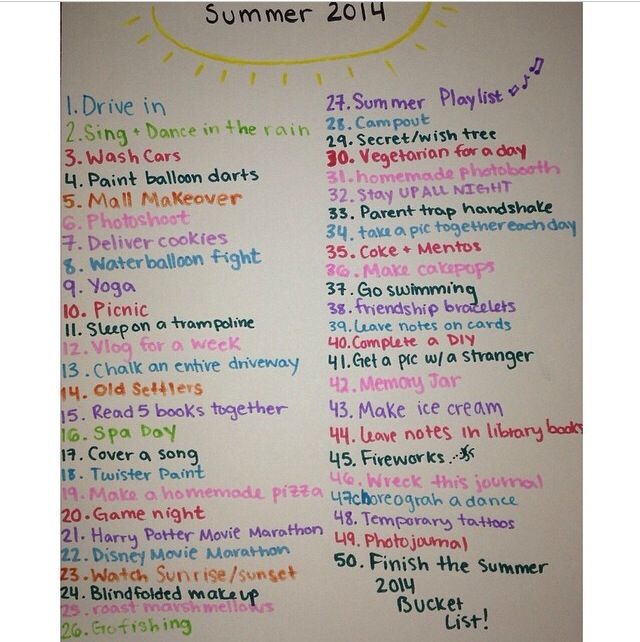 Summer 2014
1. Drive in
2. Sing + Dance in the rain
3. Wash Cars
4. Paint balloon darts
5. Mall Makeover
6. Photoshoot
7. Deliver cookies
8. Waterballoon fight
9. Yoga
10. Picnic
11. Sleep on a trampoline
12. Vlog for a week
13. Chalk an entire driveway
14. Old Settlers
15. Read 5 books together
16. Spa Day
17. Cover a song
18. Twister Paint
19. Make a homemade pizza
20. Game night
21. Harry Potter Movie Marathon
22. Disney Movie Marathon
23. Watch Sunrise/sunset
24. Blindfolded makeup
25. roast marshmellows
26. Go fishing
27. Summer Playlist
28. Campout
29. Secret/wish tree
30. Vegetarian for a day
31. homemade photobooth
32. Stay UP ALL NIGHT
33. Parent trap handshake
34. take a pic together each day
35. Coke + Mentos
36. Make cakepops
37. Go swimming
38. friendship bracelets
39. leave notes on cards
40. Complete a DIY
41. Get a pic w/ a stranger
42. Memory Jar
43. Make ice cream
44. leave notes in library books
45. Fireworks
46. Wreck this journal
47 choreograh a dance
48. Temporary tattoos
49. Photojournal
50. Finish the Summer
2014
Bucket
List!